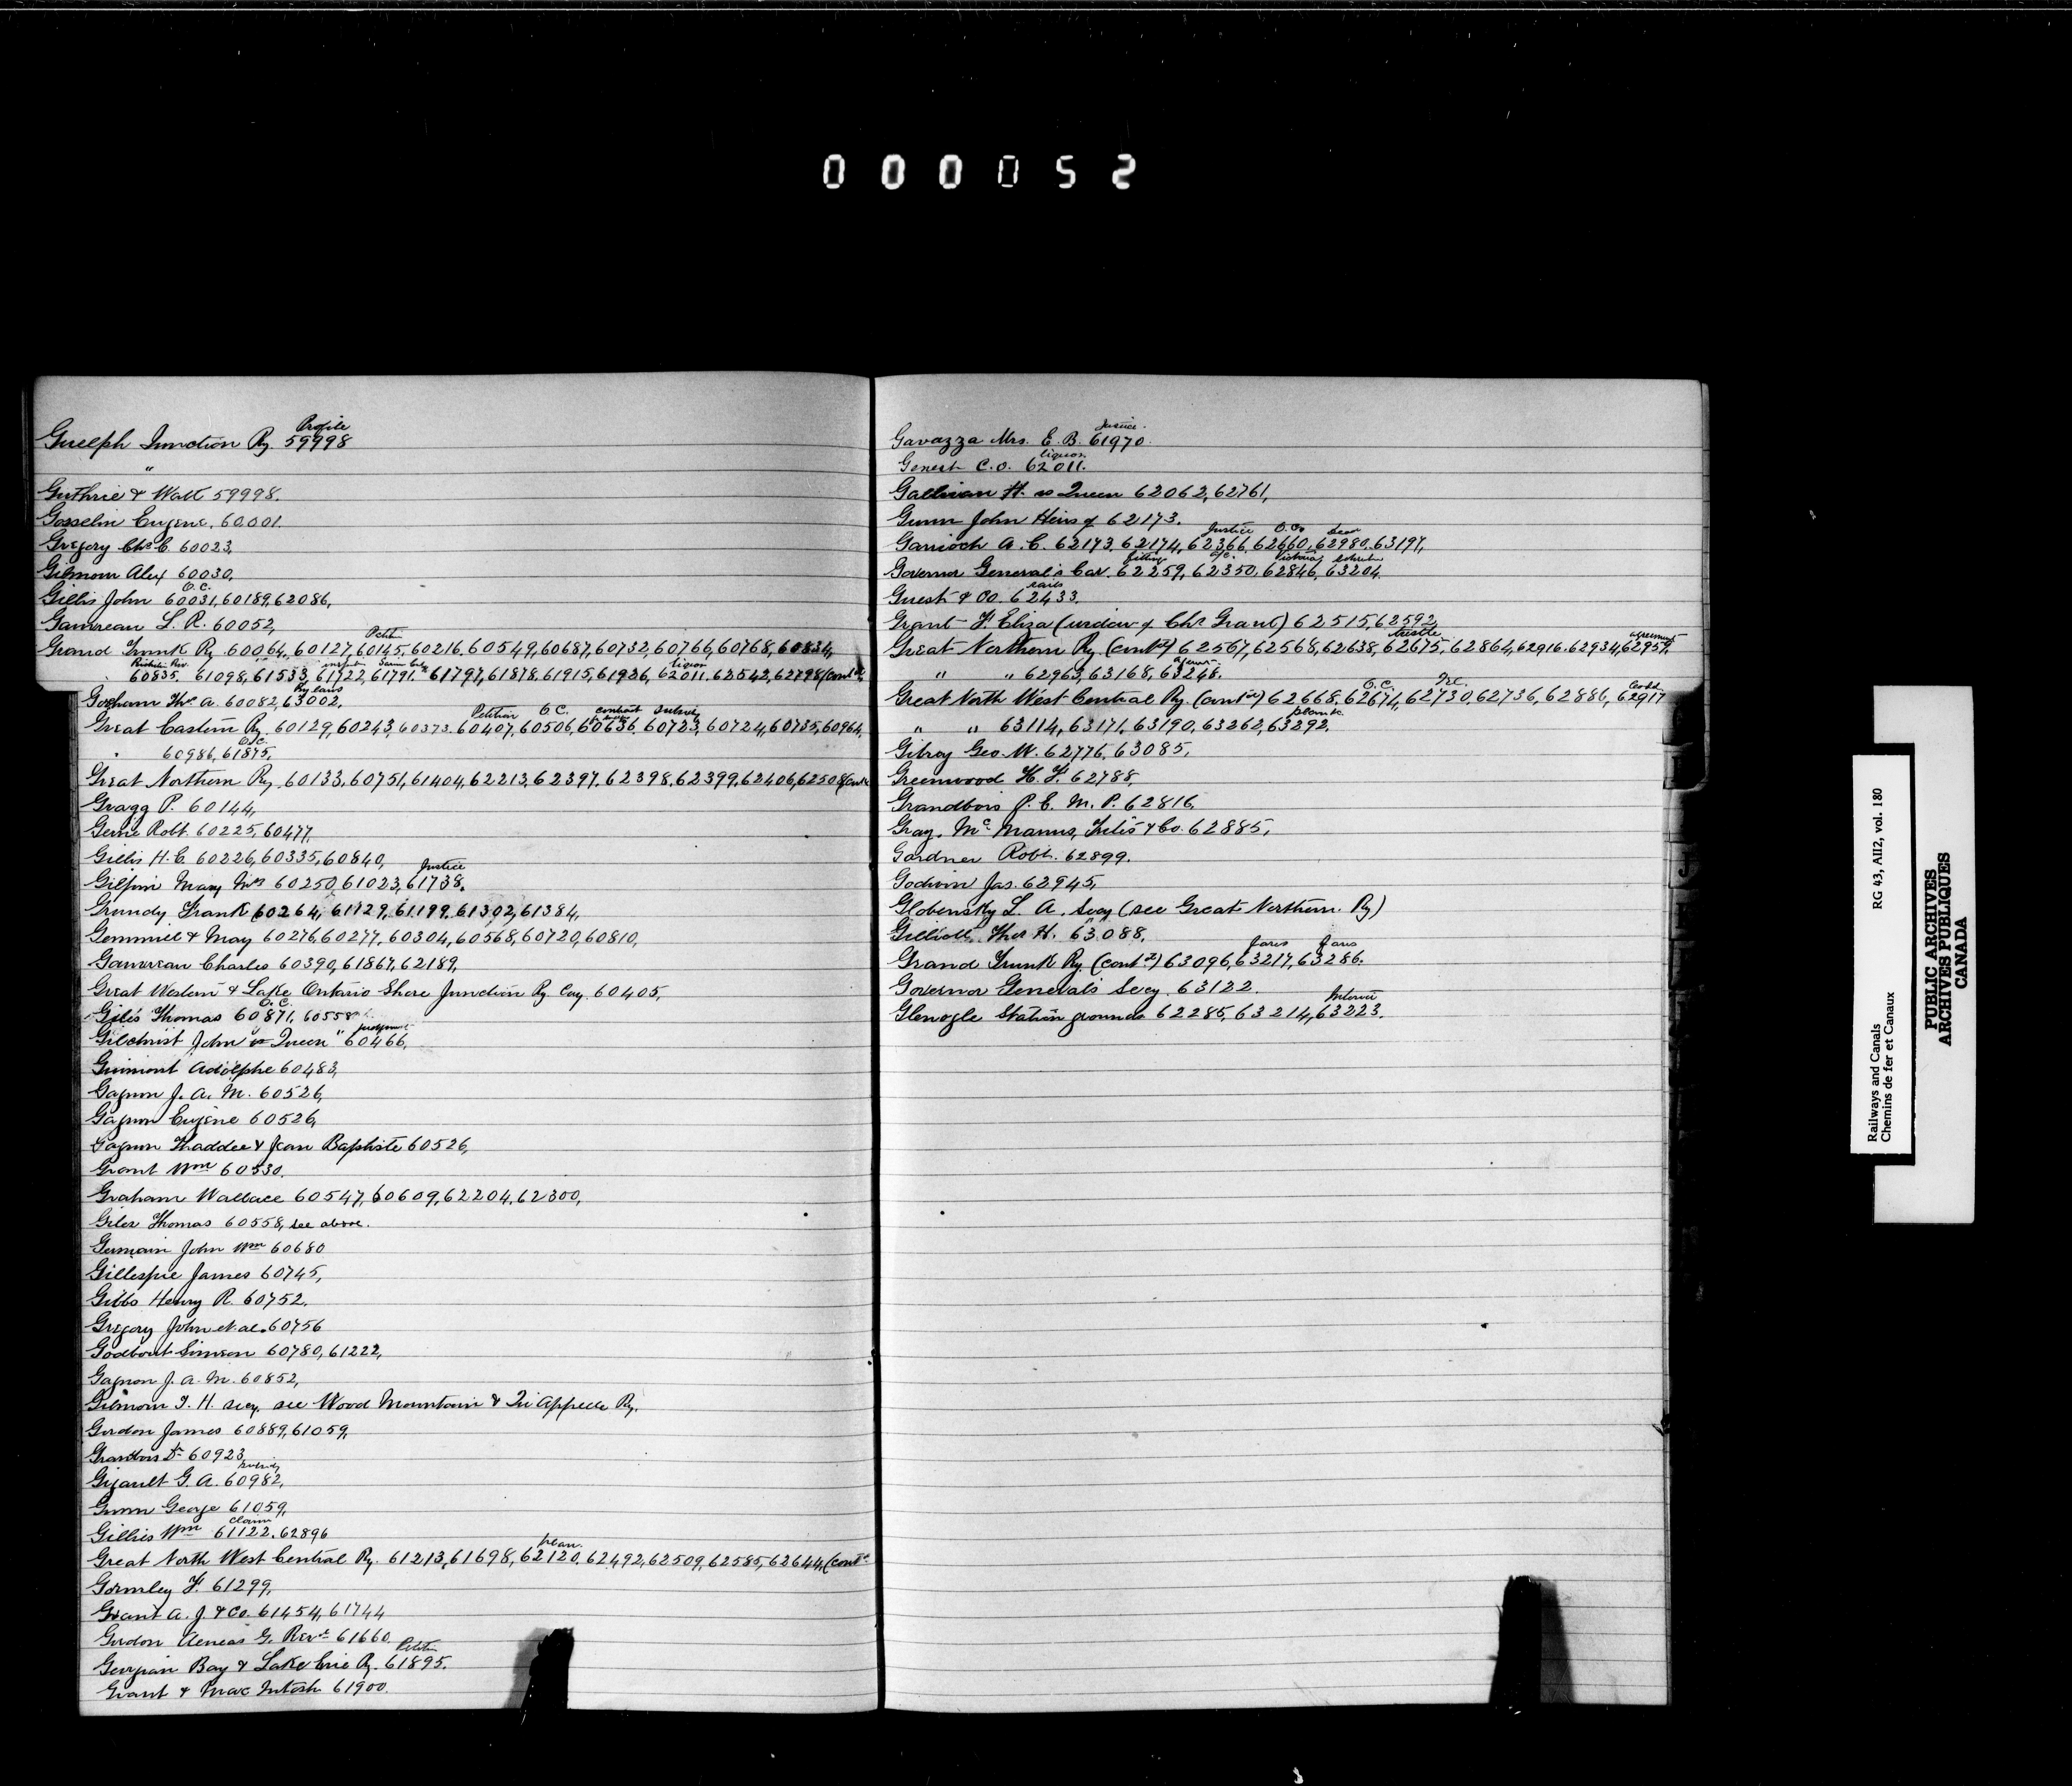 000052
Profile
Guelph Junction Ry. 59998
"
Guthrie & Watt 59998.
Gosselin Eugene. 60001.
Gregory Chs C. 60023,
Gilmour Alex 60030,
O.C.
Gillis John 60031, 60189, 62086,
Gauvreau L. R. 60052,
Petition
Grand Trunk Ry 60064, 60127, 60145, 60216, 60549, 60687, 60732, 60766, 60768, 60834,
liquor
60835. 61098, 61533, 61722, 61791. 61797, 61878. 61915, 61926, 62011. 62542, 62798 (contd.
By laws
Gorham Ths. A. 60082, 63002.
Petition O C. contract Subsidy
Great Eastern Ry. 60129, 60243, 60373. 60407, 60506, 60636, 60723, 60724, 60735, 60964,
O.C.
" 60986, 61875,
Great Northern Ry. 60133, 60751, 61404, 62213, 62397. 62398. 62399, 62406, 62508 (contd
Gragg P. 60144,
Gerrie Robt. 60225, 60477,
Gillis H. C. 60226, 60335, 60840,
Justice
Gilpin Mary Mrs 60250, 61023, 61738.
Grundy Frank 60264, 61129, 61199, 61302, 61384,
Gemmill & May 60276, 60277, 60304, 60568, 60720, 60810,
Gauvreau Charles 60390, 61867, 62189,
Great Western & Lake Ontario Shore Junction Ry. Coy. 60405,
O. C.
Giles Thomas 60871, 60558
judgment
Gilchrist John vs Queen " 60466,
Guimont Adolphe 60483,
Gagnon J. A. M. 60526,
Gagnon Eugène 60526,
Gagnon Thaddee & Jean Baptiste 60526,
Grant Wm 60530.
Graham Wallace 60547, 60609, 62204, 62300,
Giles Thomas 60558, see above.
Germain John Wm 60680
Gillespie James 60745,
Gibbs Henry R. 60752.
Gregory John et. al. 60756
Godbout Simeon 60780, 61222,
Gagnon J. A. M. 60852,
Gilmour T. H. secy. see Wood Mountain & Qu'Appelle Ry.
Gordon James 60889, 61059,
Grandbois Dr 60923
subsidy
Gigault G. A. 60982,
Gunn George 61059,
claim
Gillies Wm 61122. 62896
plan.
Great North West Central Ry. 61213, 61698, 62120, 62492, 62509, 62585, 62644, (contd
Gormley F. 61299,
Grant A. J. & Co. 61454, 61744
Gordon Aeneas G. Revd 61660
Petition
Georgian Bay & Lake Erie Ry. 61895.
Grant & MacIntosh 61900.
Justice.
Gavazza Mrs. E. B. 61970.
liquor.
Genest C. O. 62011.
Gallivan H. vs Queen 62062, 62761,
Gunn John Heirs of 62173.
Justice O.C.
Garrioch A. C. 62173, 62174, 62366, 62660, 62980. 63197,
fitting O/C. Pictures Schreiber
Governor General's Car. 62259, 62350, 62846, 63204.
rails
Guest & Co. 62433.
Grant F. Eliza (widow of Chs Grant) 62515, 62592,
trestle agreement
Great Northern Ry. (contd) 62567, 62568, 62638, 62675, 62864, 62916. 62934, 62957.
" " 62963, 63168, 63248.
O.C. Tel.
Great North West Central Ry. (contd) 62668, 62671, 62730, 62736, 62886, 62917
plan &c.
" " 63114, 63171, 63190, 63262, 63292.
Gilroy Geo. W. 62776, 63085,
Greenwood H. F. 62788,
Grandbois P. E. M. P. 62816,
Gray, Mc Manus, Félis & Co. 62885,
Gardner Robt. 62899.
Godwin Jas. 62945,
Globensky L. A. Secy (see Great Northern Ry)
Gilliott Thos H. 63088.
fares fares
Grand Trunk Ry. (contd) 63096, 63217, 63286.
Governor General's Secy. 63122.
Interior
Glenogle Station grounds 62285, 63214, 63223.
Railways and Canals RG 43, AII2, vol. 180
Chemins de fer et Canaux
PUBLIC ARCHIVES
ARCHIVES PUBLIQUES
CANADA